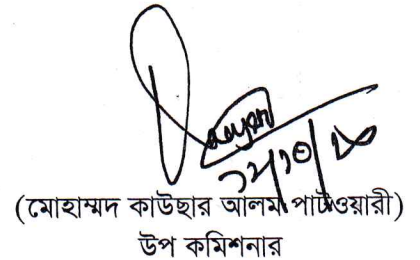 (মোহাম্মদ কাউছার আলম পাটওয়ারী)
উপ কমিশনার